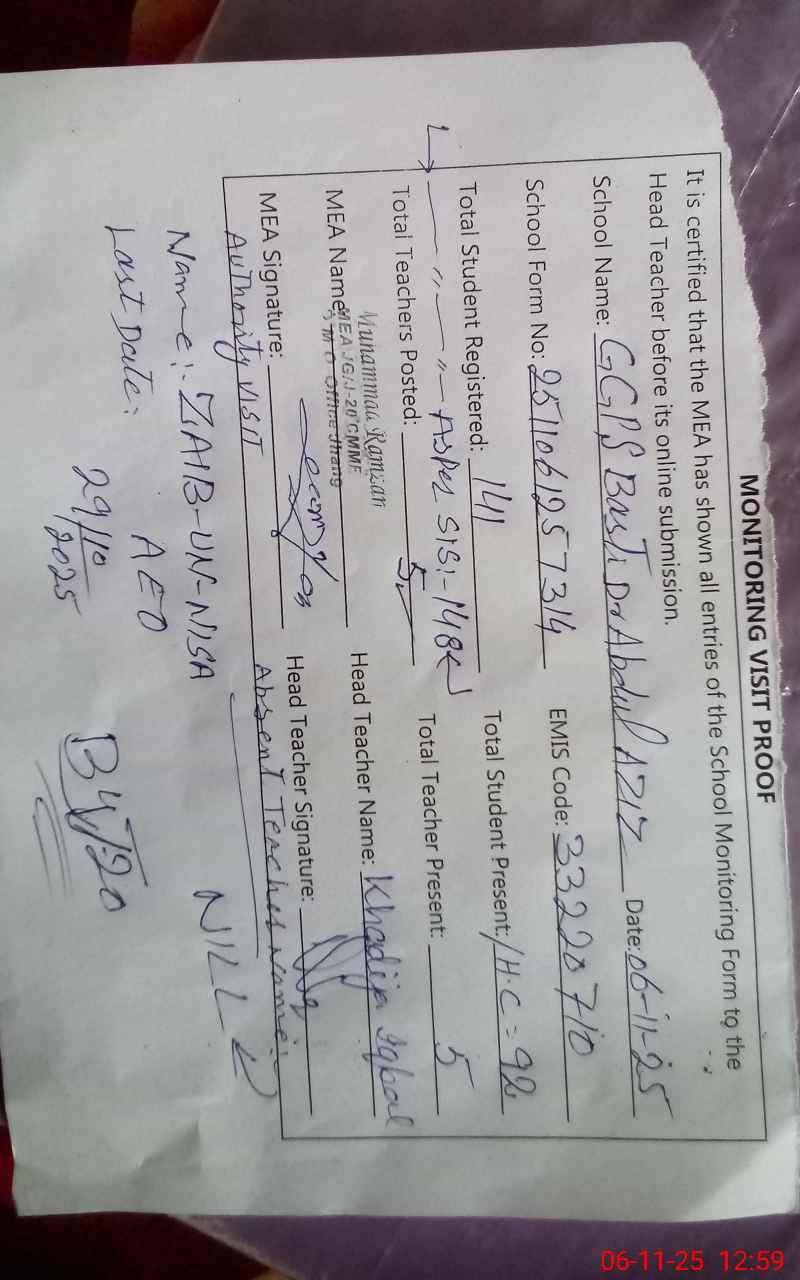 MONITORING VISIT PROOF
It is certified that the MEA has shown all entries of the School Monitoring Form to the
Head Teacher before its online submission.
School Name: GGPS Basti Dr Abdul AZIZ Date: 06-11-25
School Form No: 2511061257314 EMIS Code: 33220710
Total Student Registered: 141 Total Student Present: /H.C = 92
→ — " — " — As per SIS:- 148
Total Teachers Posted: 5 Total Teacher Present: 5
Muhammad Ramzan
MEA JG/J-20 CMMF
MEA Name: M O Office Jhang Head Teacher Name: Khadija Iqbal
MEA Signature: Head Teacher Signature:
Authority VISIT Absent Teacher Name:
Name:- ZAIB-UN-NISA NILL
AEO
Last Date: 29/10/2025
06-11-25 12:59